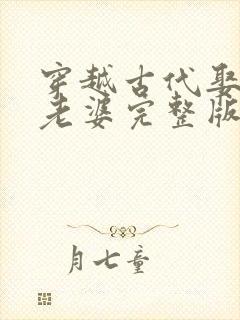 穿越古代娶
老婆完整版
月七童